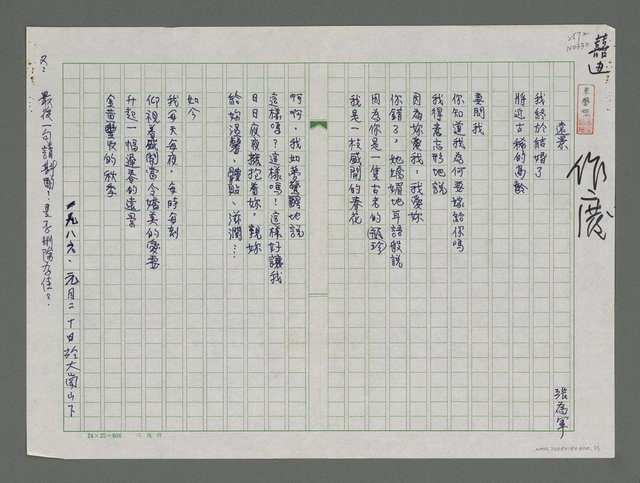 遠景
張為軍
我終於結婚了
將近古稀的高齡
要問我
你知道我為何要嫁給你嗎
我得意忘形地說
因為妳愛我，我愛妳
你錯了，她嬌媚地耳語般說
因為你是一隻古老的（甌珍）
我是一枝盛開的春花
啊啊，我如夢驚醒地說
這樣嗎？這樣嗎！這樣好讓我
日日夜夜擁抱着妳，親妳
給妳溫馨、體貼、滋潤…
如今
我每天每夜，每時每刻
仰視着盛開當令嬌美的愛妻
升起一幅邊春的遠景
金苗豐收的秋季
一九八六、元月二十日於大崗山下
又：最後一句請斟酌？是否刪除為佳？
作廢
24×25=600